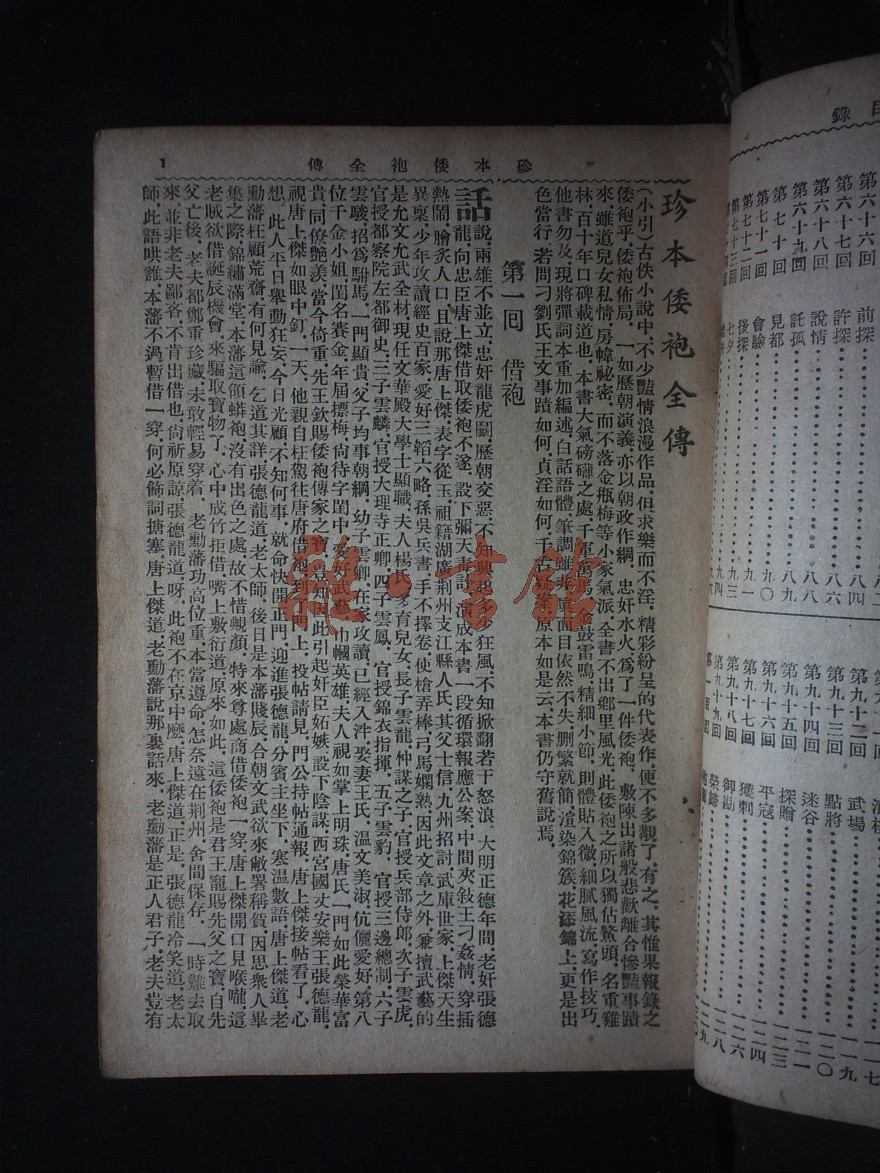 珍本倭袍全傳
1
珍本倭袍全傳
(小引)古佚小說中，不少豔情浪漫作品，但求樂而不淫，精彩紛呈的代表作，便不多觀了，有之，其惟果報錄之
倭袍乎，倭袍佈局，一如歷朝演義，亦以朝政作綱，忠奸水火，爲了一件倭袍，敷陳出諸般悲歡離合慘豔事蹟
來，雖道兒女私情，房幃秘密，而不落金瓶梅等小家氣派，全書不出鄉里風光，此倭袍之所以獨佔鰲頭，名重雞
林，百十年口碑載道也，本書大氣磅礴之處，千軍萬馬，鼓雷鳴，精細小節，則體貼入微，細膩風流，寫作技巧，
他書勿及，現將彈詞本重加編述，白話語體，筆調雖非，面目依然不失，刪繁就簡，渲染錦簇，花添錦上，更是出
色當行，若問刁劉氏王文事蹟如何，貞淫如何，千古疑，原本如是云，本書仍守舊說焉，
第一回　借袍
話說，兩雄不並立，忠奸龍虎鬭，歷朝交惡，不知興起多少狂風，不知掀翻若干怒浪，大明正德年間，老奸張德
龍，向忠臣唐上傑借取倭袍不遂，設下彌天毒計，演成本書一段循環報應公案，中間夾敍王刁姦情，穿插
熱鬧，膾炙人口，且說那唐上傑，表字從玉，祖籍湖廣荊州支江縣人氏，其父士信，九州招討，武庫世家，上傑天生
異稟，少年攻讀經史百家，愛好三韜六略，孫吳兵書，手不擇卷，使槍弄棒，弓馬嫻熟，因此文章之外，兼擅武藝，的
是允文允武全材，現任文華殿大學士顯職，夫人楊氏，多育兒女，長子雲龍，仲謀之子，官授兵部侍郎，次子雲虎，
官授都察院左都御史，三子雲麟，官授大理寺正卿，四子雲鳳，官授錦衣指揮，五子雲豹，官授三邊總制，六子
雲駿，招爲駙馬，一門顯貴，父子均事朝綱，幼子雲卿，在家攻讀，已經入泮，娶妻王氏，溫文美淑，伉儷愛好，第八
位千金小姐，閨名賽金，年屆摽梅，尙待字閨中，愛好武藝，巾幗英雄，夫人視如掌上明珠，唐氏一門如此榮華富
貴，同僚艷羨，當今倚重，先王欽賜倭袍傳家之寶，豈知因此引起奸臣妬嫉，設下陰謀，西宮國丈安樂王張德龍，
視唐上傑如眼中釘，一天，他親自枉駕往唐府借袍，到門上，投帖請見，門公持帖通報，唐上傑接帖看了，心
想，此人平日舉動狂妄，今日光顧，不知何事，就命快開正門，迎進張德龍，分賓主坐下，寒溫數語，唐上傑道，老
勳藩枉顧荒齋，有何見諭，乞道其詳，張德龍道，老太師，後日是本藩賤辰，合朝文武欲來敝署稱賀，因思衆人畢
集之際，錦繡滿堂，本藩這領蟒袍，沒有出色之處，故不惜靦顏，特來尊處商借倭袍一穿，唐上傑開口見喉嚨，這
老賊欲借誕辰機會，來騙取寶物了，心中成竹拒借，嘴上敷衍道，原來如此，這倭袍是君王寵賜先父之寶，自先
父亡後，老夫都鄭重珍藏，未敢輕易穿着，老勳藩功高位重，本當遵命，怎奈遠在荊州，舍間保存，一時難去取
來，並非老夫鄙吝，不肯出借也，尙祈原諒，張德龍道，呀，此袍不在京中麽，唐上傑道，正是，張德龍冷笑道，老太
師，此語哄誰，本藩不過暫借一穿，何必佈詞搪塞，唐上傑道，老勳藩說那裏話來，老勳藩是正人君子，老夫豈有
目錄
第六十六回　前探
第六十七回　許探
第六十八回　說情　八六
第六十九回　託孤　八八
第七十回　見都　八九
第七十一回　會驗　九〇
第七十二回　後探　九一
第七十三回　七夕　九三
第九十二回　武場
第九十三回　點將　一二〇
第九十四回　迷谷　一二一
第九十五回　探贈　一二三
第九十六回　平寇　一二四
第九十七回　獲刺　一二六
第九十八回　御勘　一二八
第九十九回　榮歸
雜·书馆